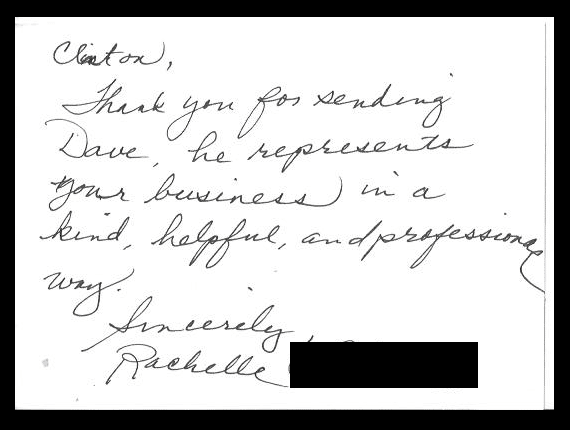 Clinton,
Thank you for sending
Dave, he represents
your business in a
kind, helpful, and professional
way.
Sincerely,
Rachelle